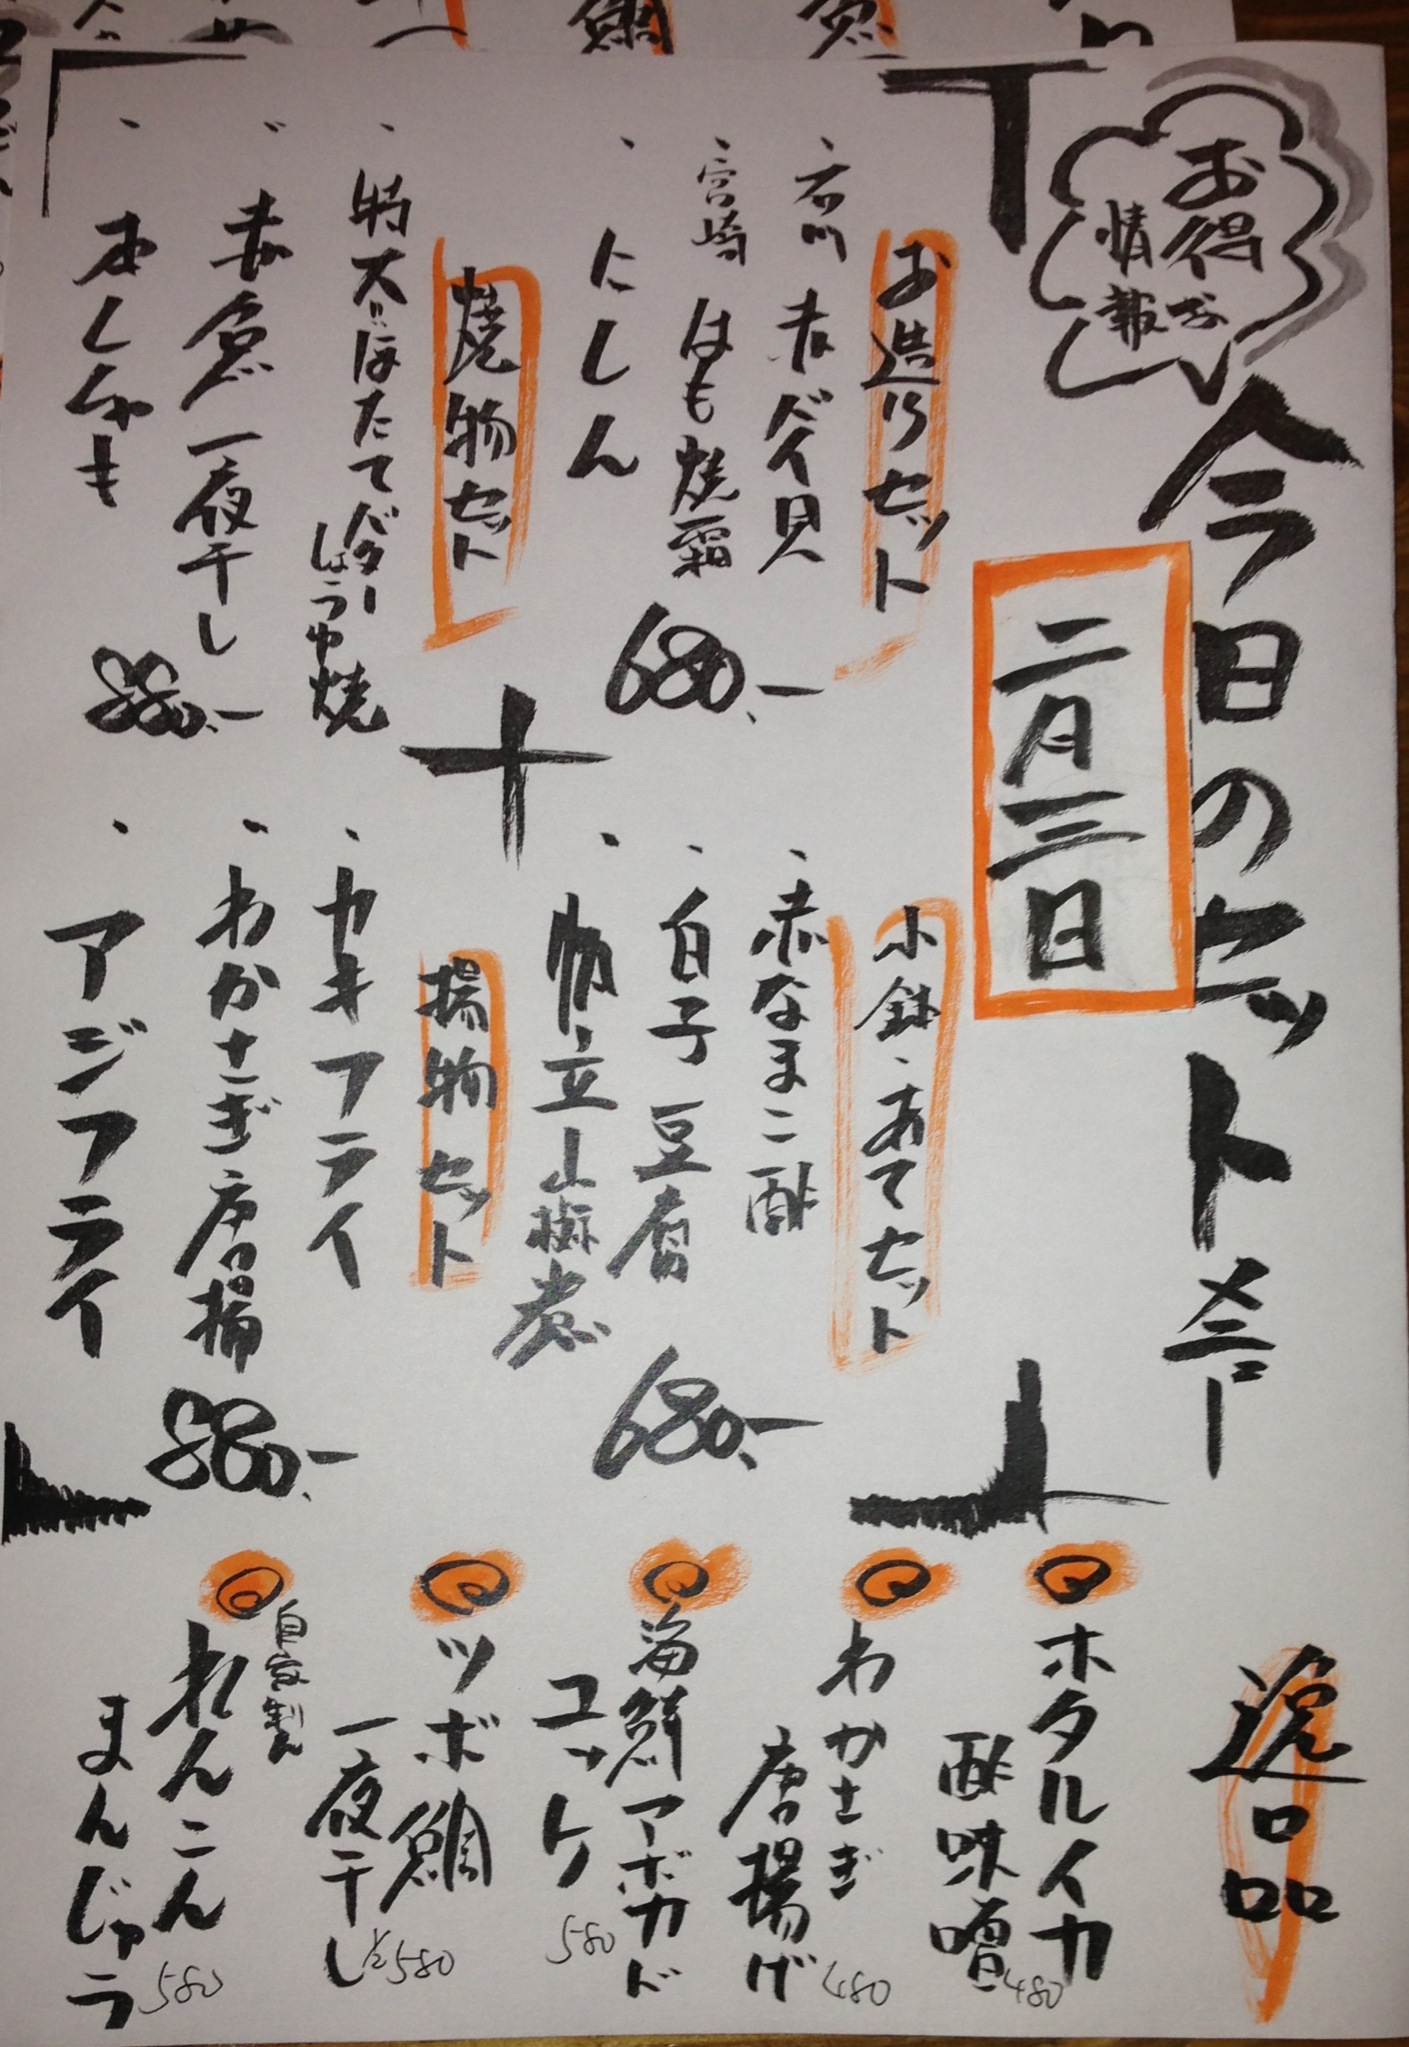 お得な
情報
今日のセットメニュー
二月三日
お造りセット
・石川 赤バイ貝
・宮崎 はも焼霜
・にしん
680.-
焼物セット
・特大ほたてバター
しょうゆ焼
・赤魚一夜干し
・本ししゃも
880.-
小鉢・あてセット
・赤なまこ酢
・白子豆腐
・帆立山椒煮
680.-
揚物セット
・カキフライ
・わかさぎ唐揚
・アジフライ
880.-
逸品
ホタルイカ
酢味噌 480
わかさぎ
唐揚げ 480
海鮮アボカド
ユッケ 580
ツボ鯛
一夜干し 1/2 580
自家製
れんこん
まんじゅう 580